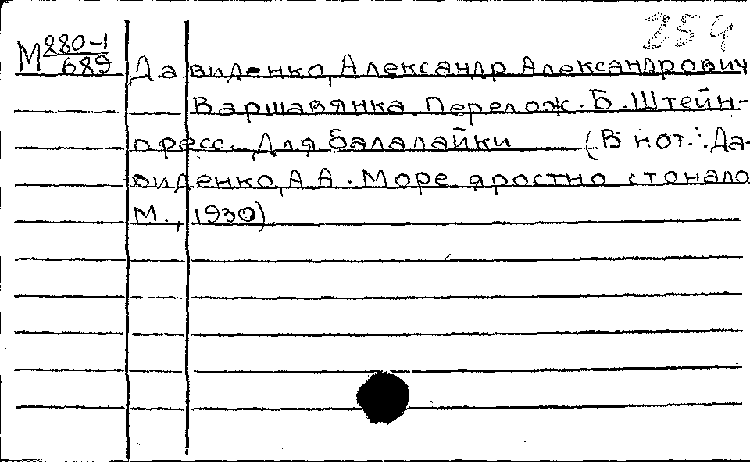 254
М 880-1
689
Давиденко, Александр Александрович
Варшавянка. Перелож. Б. Штейн-
пресс. Для балалайки (В нот.: Да-
виденко, А А. Море яростно стонало
М., 1930)